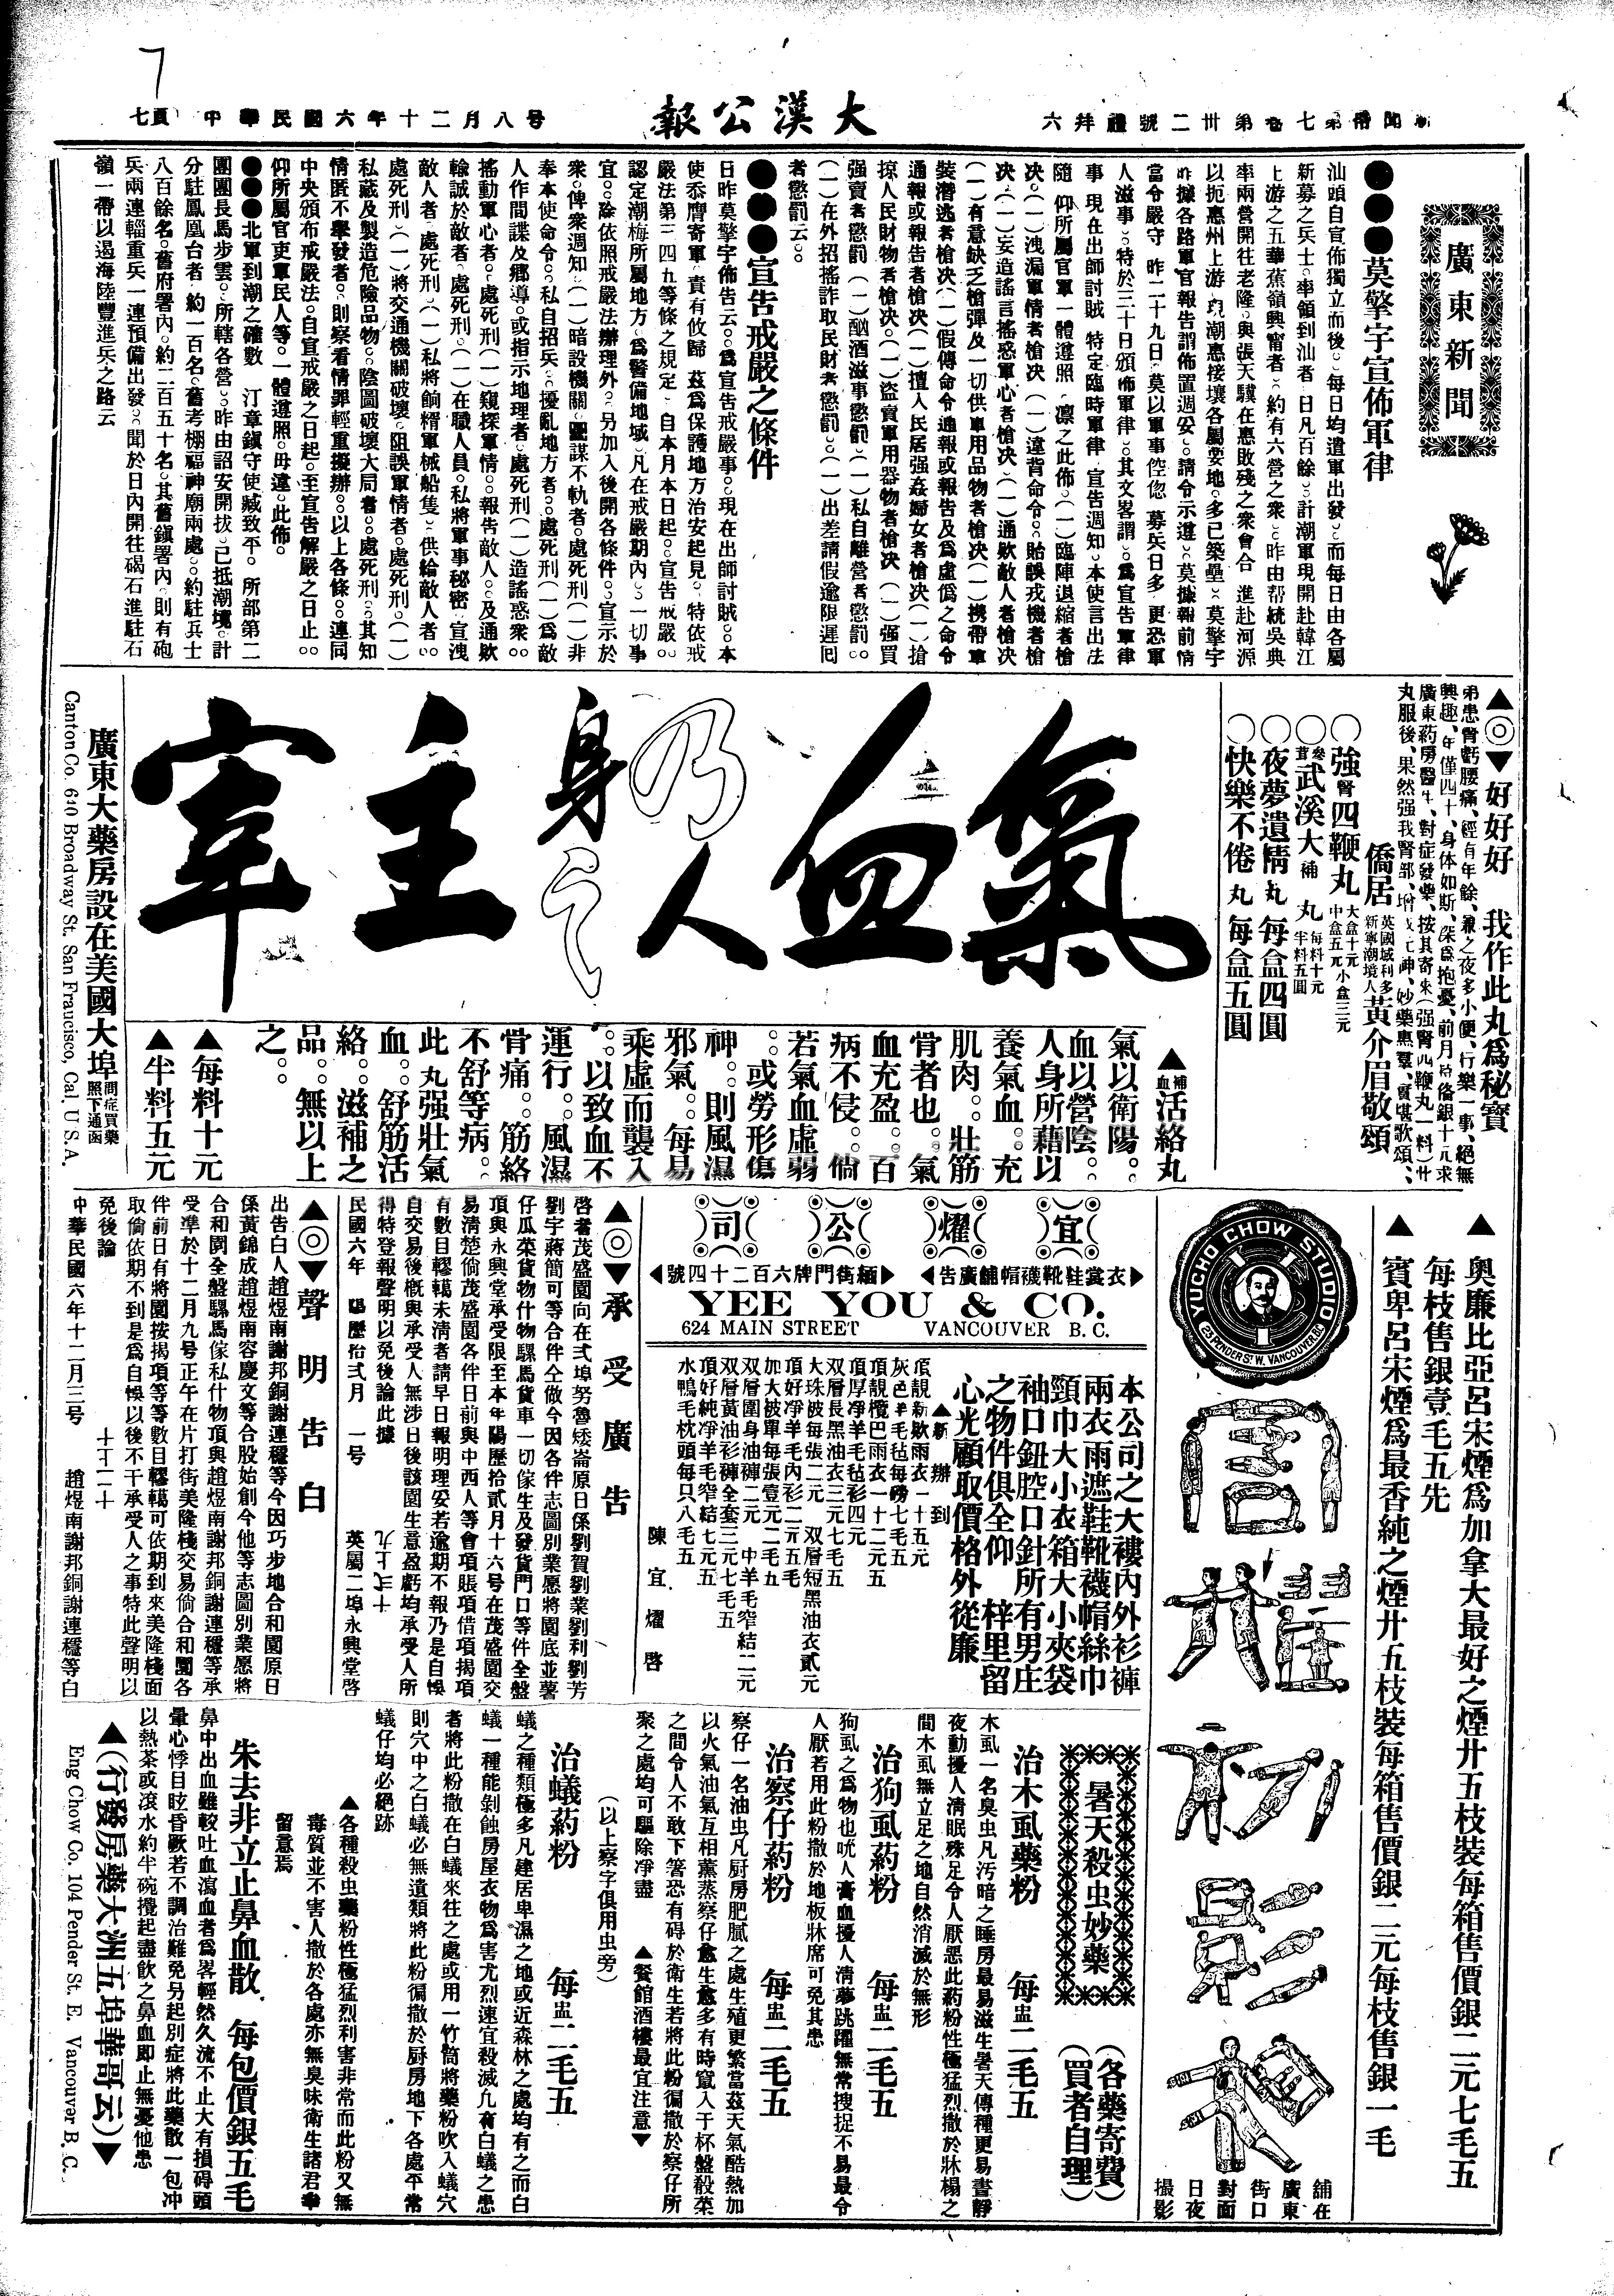 7
新聞冊第七卷第卅二號禮拜六
大漢公報
中華民國六年十二月八号
七頁
廣東新聞
●●●莫擎宇宣佈軍律
汕頭自宣佈獨立而後。每日均遣軍出發。而每日由各屬
新募之兵士。率領到汕者。日凡百餘。計潮軍現開赴韓江
上游之五華蕉嶺興甯者。約有六營之衆。昨由帮統吳典
率兩營開往老隆。與張天驥在惠敗殘之衆會合。進赴河源
以扼惠州上游。現潮惠接壤各屬要地。多已築壘。莫擎宇
昨據各路軍官報告謂佈置週妥。請令示遵。莫據報前情
當令嚴守。昨二十九日。莫以軍事倥偬。募兵日多。更恐軍
人滋事。特於三十日頒佈軍律。其文畧謂。爲宣告軍律
事。現在出師討賊。特定臨時軍律。宣告週知。本使言出法
隨。仰所屬官軍一體遵照。凜之此佈。（一）臨陣退縮者槍
决。（一）洩漏軍情者槍决（一）違背命令。貽誤戎機者槍
决。（一）妄造謠言搖惑軍心者槍决（一）通欵敵人者槍决
（一）有意缺乏槍彈及一切供軍用品物者槍决（一）携帶軍
裝潛逃者槍决（一）假傳命令通報或報告及爲虛僞之命令
通報或報告者槍决（一）擅入民居强姦婦女者槍决（一）搶
掠人民財物者槍决。（一）盜賣軍用器物者槍决（一）强買
强賣者懲罰（一）酗酒滋事懲罰（一）私自離營者懲罰。
（一）在外招搖詐取民財者懲罰。（一）出差請假逾限遲囘
者懲罰云。
●●●宣告戒嚴之條件
日昨莫擎宇佈告云。爲宣告戒嚴事。現在出師討賊。本
使忝膺寄軍。責有攸歸。茲爲保護地方治安起見。特依戒
嚴法第三四九等條之規定。自本月本日起。宣告戒嚴。
認定潮梅所屬地方。爲警備地域。凡在戒嚴期內。一切事
宜。除依照戒嚴法辦理外。另加入後開各條件。宣示於
衆。俾衆週知。（一）暗設機關。圖謀不軌者。處死刑（一）非
奉本使命令。私自招兵。擾亂地方者。處死刑（一）爲敵
人作間諜及鄉導。或指示地理者。處死刑（一）造謠惑衆。
搖動軍心者。處死刑（一）窺探軍情。報告敵人。及通欵
輸誠於敵者。處死刑。（一）在職人員。私將軍事秘密。宣洩
敵人者。處死刑（一）私將餉糈軍械船隻。供給敵人者。
處死刑（一）將交通機關破壞。阻誤軍情者。處死刑。（一）
私藏及製造危險品物。陰圖破壞大局者。處死刑。其知
情匿不舉發者。則察看情罪輕重擬辦。以上各條。連同
中央頒布戒嚴法。自宣戒嚴之日起。至宣告解嚴之日止。
仰所屬官吏軍民人等。一體遵照。毋違。此佈。
●●●北軍到潮之確數　汀章鎮守使臧致平。所部第二
團團長馬步雲。所轄各營。昨由詔安開拔。已抵潮境。計
分駐鳳凰台者。約一百名。舊考棚福神廟兩處。約駐兵士
八百餘名。舊府署內。約二百五十名。其舊鎮署內。則有砲
兵兩連輜重兵一連預備出發。聞於日內開往碣石進駐石
嶺一帶以遏海陸豐進兵之路云
▲◎▼好好好　我作此丸爲秘寶
弟患腎虧腰痛、經有年餘、兼之夜多小便、行樂一事、絕無
興趣、年僅四十、身体如斯、深爲抱憂、前月付銀十元求
廣東葯房醫生、對症發藥、按其寄來（强腎四鞭丸一料）廿
丸服後、果然强我腎部、增我元神、妙藥惠羣、實堪歌頌、
僑居英國域利多新寧潮境人黃介眉敬頌
○強腎四鞭丸　大盒十元　中盒五元　小盒三元
○參茸武溪大補丸　每料十元　半料五圓
○夜夢遺情丸　每盒四圓
○快樂不倦丸　每盒五圓
氣血乃人身之主宰
▲補血活絡丸
氣以衛陽。
血以營陰。
人身所藉以
養氣血。充
肌肉。壯筋
骨者也。氣
血充盈。百
病不侵。倘
若氣血虛弱
。或勞形傷
神。則風濕
邪氣。每易
乘虛而襲入
。以致血不
運行。風濕
骨痛。筋絡
不舒等病。
此丸强壯氣
血。舒筋活
絡。滋補之
品。無以上
之。
▲每料十元
▲半料五元
廣東大藥房設在美國大埠　問症買藥　照下通函
Canton Co. 640 Broadway St. San Francisco, Cal. U.S.A.
▲奧廉比亞呂宋煙爲加拿大最好之煙廿五枝裝每箱售價銀二元七毛五
每枝售銀壹毛五先
▲賓卑呂宋煙爲最香純之煙廿五枝裝每箱售價銀二元每枝售銀一毛
YUCHO CHOW STUDIO
25 PENDER ST. W. VANCOUVER. B.C.
舖在
廣東
街口
對面
日夜
撮影
宜燿公司
▶衣裳鞋靴襪帽舖廣告◀
▶緬街門牌六百二十四號◀
YEE YOU & CO.
624 MAIN STREET VANCOUVER B. C.
本公司之大褸內外衫褲
兩衣雨遮鞋靴襪帽絲巾
頸巾大小衣箱大小夾袋
袖口鈕腔口針所有男庄
之物件俱全仰　梓里留
心光顧取價格外從廉
▲新辦到
頂靚新欵雨衣一十五元
灰色羊毛毡每磅七毛五
頂靚欖巴雨衣一十二元五
頂厚淨羊毛毡衫四元
双層長黑油衣三元七毛五
大珠被每張二元　双層短黑油衣貳元
頂好淨羊毛內衫二元五毛
加大被單每張壹元二毛五
双層圍身油褲二元　中羊毛窄結二元
双層黃油衫褲全套三元七毛五
頂好純淨羊毛窄結七元五
水鴨毛枕頭每只八毛五
陳宜燿啓
▲◎▼承受廣告
啓者茂盛園向在弍埠努魯矮崙原日係劉賀劉業劉利劉芳
劉宇蔣簡可等合伴仝做今因各伴志圖別業愿將園底並薯
仔瓜菜貨物什物騾馬貨車一切傢生及發貨門口等件全盤
頂與永興堂承受限至本年陽歷拾貳月十六号在茂盛園交
易清楚倘茂盛園各伴日前與中西人等會項賬項借項揭項
有數目轇轕未清者請早日報明理妥若逾期不報乃是自悞
自交易後槪與承受人無涉日後該園生意盈虧均承受人所
得特登報聲明以免後論此據
民國六年　陽歷拾弍月　一号　英屬二埠永興堂啓
▲◎▼聲明告白
出告白人趙煜南謝邦銅謝連穩等今因巧步地合和園原日
係黃錦成趙煜南容慶文等合股始創今他等志圖別業愿將
合和園全盤騾馬傢私什物頂與趙煜南謝邦銅謝連穩等承
受準於十二月九號正午在片打街美隆棧交易倘合和園各
伴前日有將園按揭項等等數目轇轕可依期到來美隆棧面
取倘依期不到是爲自悞以後不干承受人之事特此聲明以
免後論
中華民國六年十二月三号　趙煜南謝邦銅謝連穩等白
暑天殺虫妙藥
（各藥寄費）
（買者自理）
治木虱藥粉　每盅二毛五
木虱一名臭虫凡汚暗之睡房最易滋生暑天傳種更易晝靜
夜動擾人清眠殊足令人厭惡此葯粉性極猛烈撒於牀榻之
間木虱無立足之地自然消滅於無形
治狗虱葯粉　每盅二毛五
狗虱之爲物也吮人膏血擾人清夢跳躍無常搜捉不易最令
人厭若用此粉撒於地板牀席可免其患
治察仔葯粉　每盅二毛五
察仔一名油虫凡厨房肥膩之處生殖更繁當茲天氣酷熱加
以火氣油氣互相薰蒸察仔愈生愈多有時竄入于杯盤殽菜
之間令人不敢下箸恐有碍於衛生若將此粉徧撒於察仔所
聚之處均可驅除淨盡　▲餐館酒樓最宜注意▼
（以上察字俱用虫旁）
治蟻葯粉　每盅二毛五
蟻之種類極多凡建居卑濕之地或近森林之處均有之而白
蟻一種能剝蝕房屋衣物爲害尤烈速宜殺滅凡有白蟻之患
者將此粉撒在白蟻來往之處或用一竹筒將藥粉吹入蟻穴
則穴中之白蟻必無遺類將此粉徧撒於厨房地下各處平常
蟻仔均必絕跡
▲各種殺虫藥粉性極猛烈利害非常而此粉又無
毒質並不害人撒於各處亦無臭味衛生諸君幸
留意焉
朱去非立止鼻血散　每包價銀五毛
鼻中出血雖較吐血瀉血者爲畧輕然久流不止大有損碍頭
暈心悸目眩昏蹶若不調治難免另起別症將此藥散一包冲
以熱茶或滾水約半碗攪起盡飲之鼻血即止無憂他患
▲（行發房藥大洲五埠華哥云）▼
Eng Chow Co. 104 Pender St. E. Vancouver B. C.